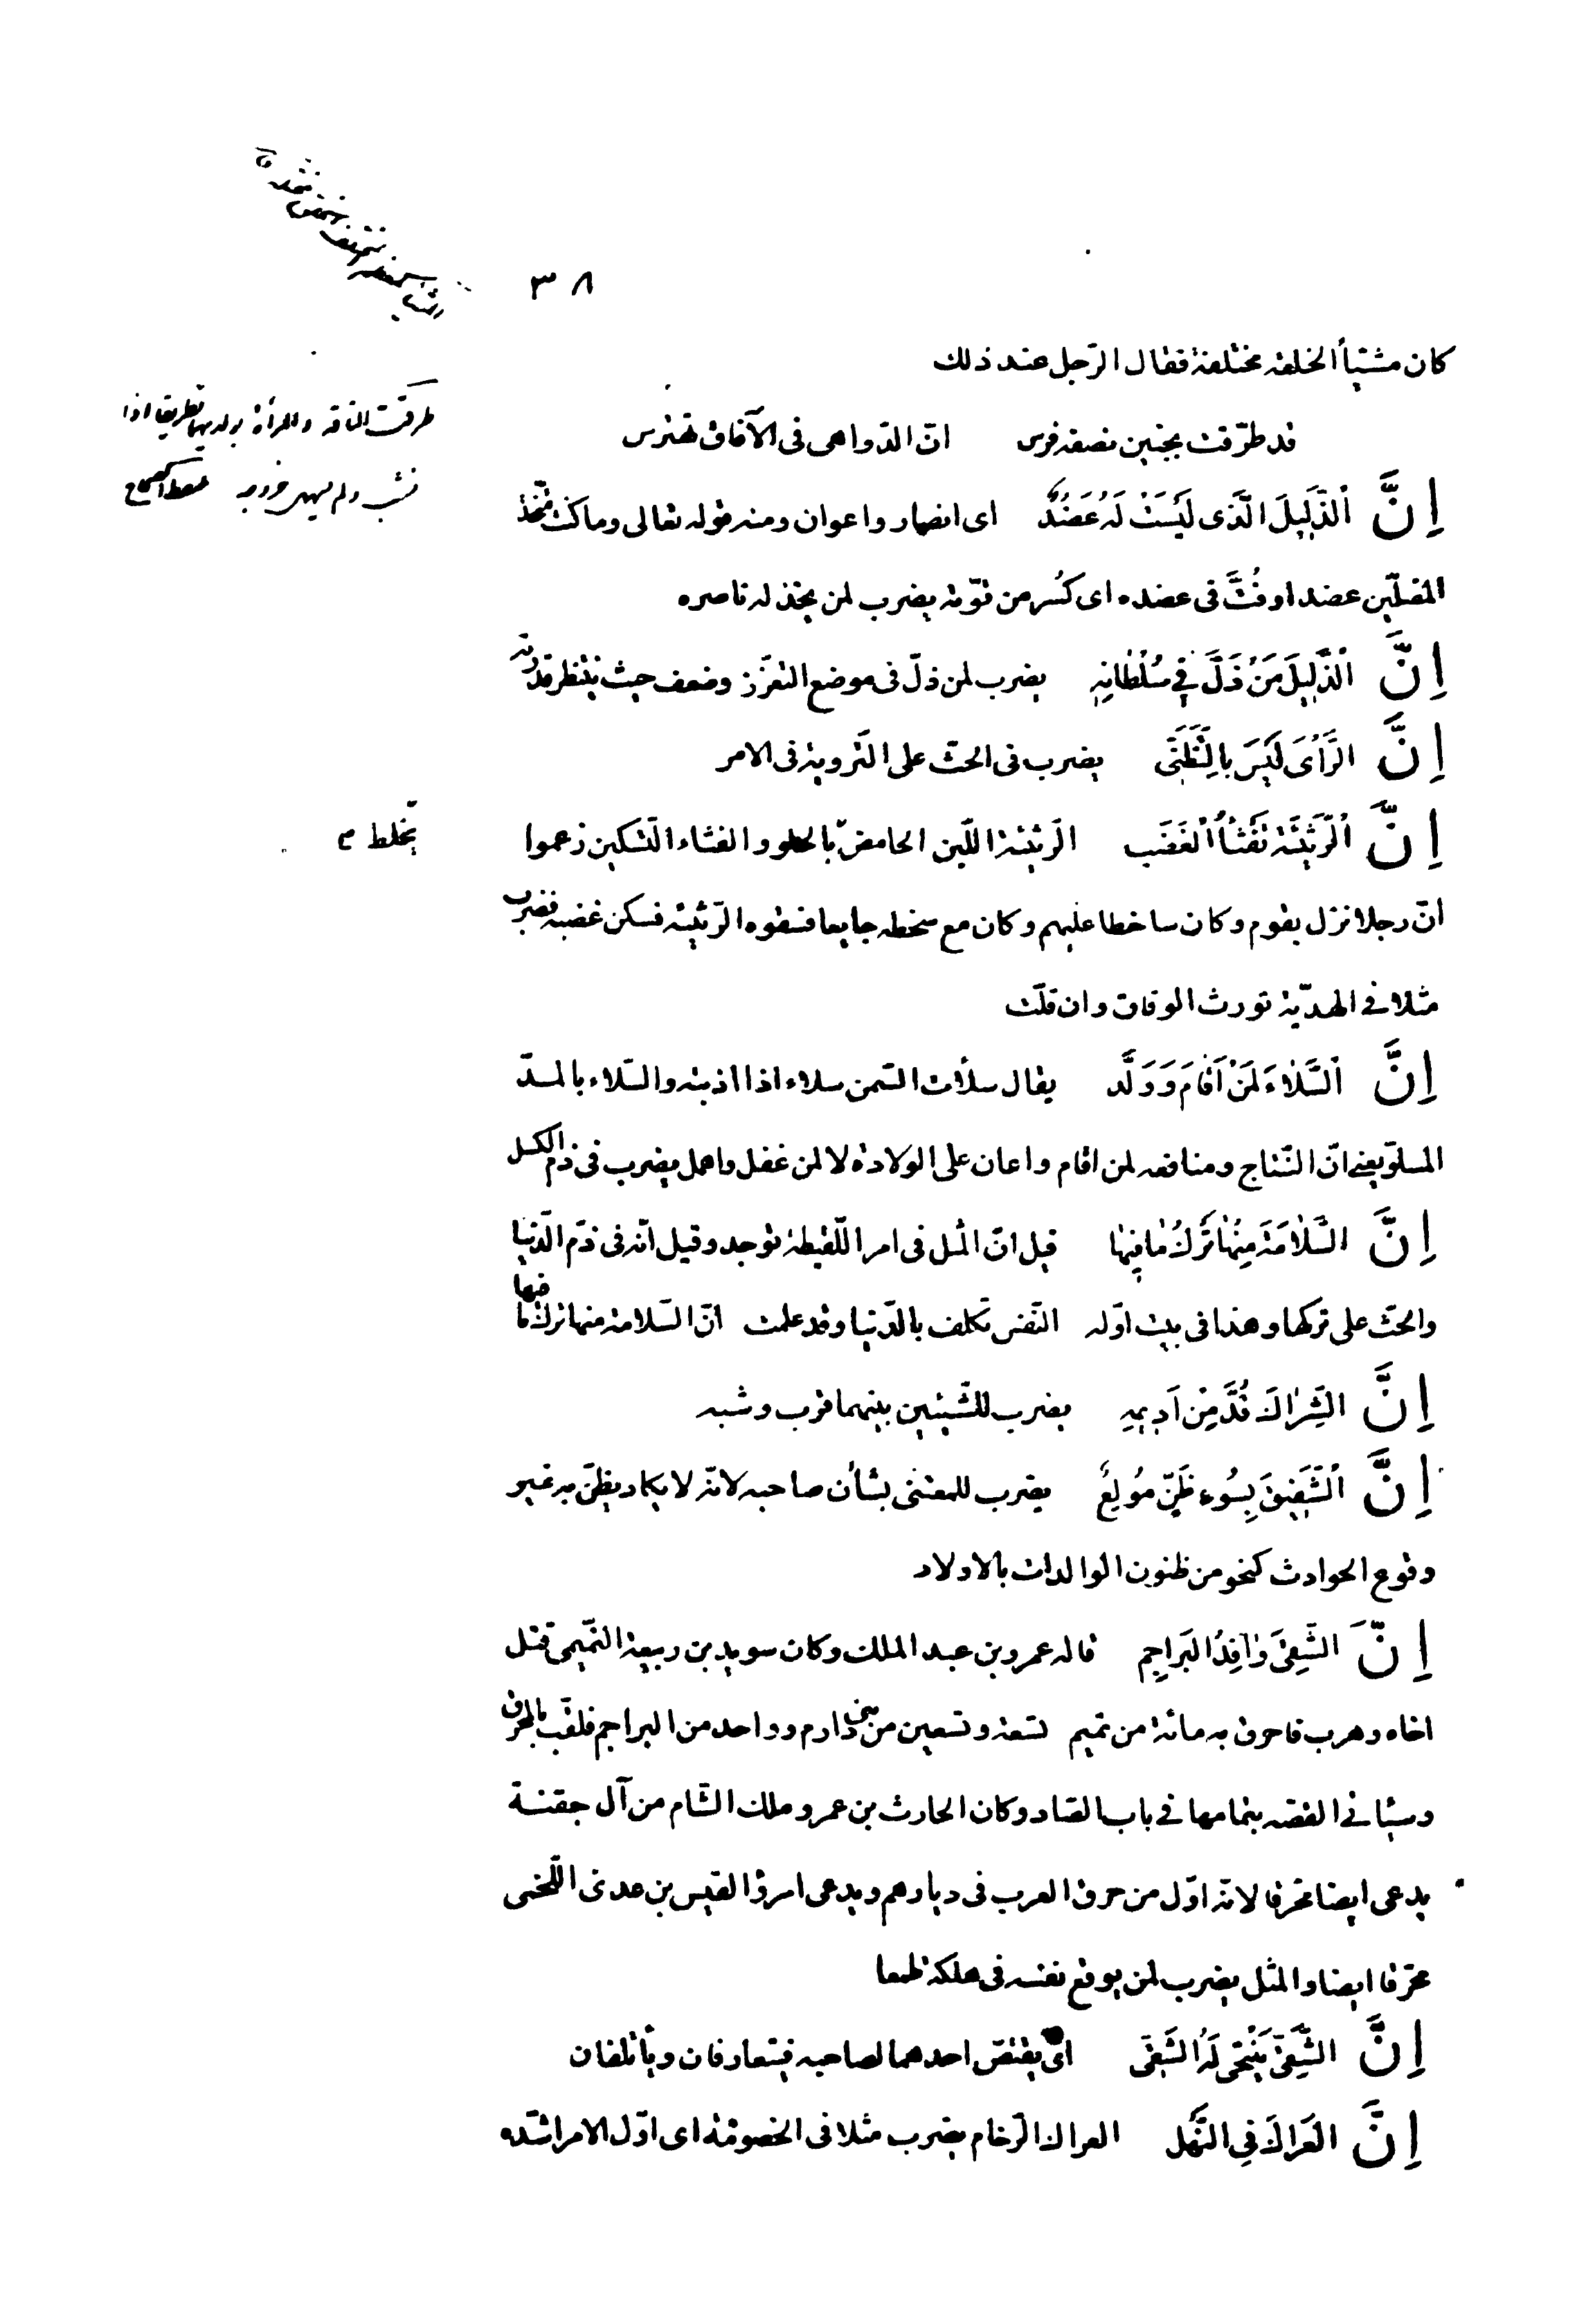 ٣٨
كان مشتبأ الخلقة مختلفة فقال الرّجل عند ذلك
قد طرّقت بجنين نصفه فرس انّ الدّواهى فى الآفاق تهترس
اِنَّ اَلذَّلِيلَ الَّذَى لَيْسَتْ لَهُ عَضُدٌ اى انصار واعوان ومنه قوله تعالى وماكنت متّخذ
المضلّين عضدا وفُتَّ فى عضده اى كُسر من قوّته يضرب لمن يخذله ناصره
اِنَّ اَلذَّلِيلَ مَنْ ذَلَّ فِي سُلْطَانِهِ يضرب لمن ذلّ فى موضع التعزّز وضعف حيث ينتظر قدرته
اِنَّ الرَّأْىَ لَيْسَ بِالتَّظَنّى يضرب فى الحثّ على التّروية فى الامر
اِنَّ اَلرَّثِيئَةَ تَفْثَأُ الْغَضَبَ الرّثيئة اللّبن الحامض بالحلو والفثاء التّسكين زعموا
يخلط
انّ رجلا نزل بقوم وكان ساخطا عليهم وكان مع سخطه جايعا فسقوه الرّثيئة فسكن غضبه فضرب
مثلا فى الهديّة تورث الوفاق وان قلّت
اِنَّ اَلسَّلاءَ لَمَنْ اَقامَ وَوَلَّد يقال سلأت السّمن سلاء اذا اذبته والسّلاء بالمدّ
المسلوّ يعنى انّ النّتاج ومنافعه لمن اقام واعان على الولادة لا لمن غفل واهمل يضرب فى ذمّ الكسل
اِنَّ السَّلامَةَ مِنْها تَرْكُ ما فِيها قيل انّ المثل فى امر اللّقيطة توجد وقيل انّه فى ذمّ الدّنيا
والحثّ على تركها وهذا فى بيت اوّله النّفس تكلف بالدّنيا وقد علمت انّ السّلامة منها ترك ما فيها
اِنَّ الشِّراكَ قُدَّ مِنْ اَدِيمِهِ يضرب للشّيئين بينهما قرب وشبه
اِنَّ اَلشَّفِيقَ بِسُوءِ ظَنٍّ مُولِعٌ يضرب للمعتنى بشأن صاحبه لانّه لا يكاد يظنّ به غير
وقوع الحوادث كنحو من ظنون الوالدات بالاولاد
اِنَّ الشَّقِىَّ وَافِدُ البَراجِم قاله عمرو بن عبد الملك وكان سويد بن ربيعة التّميمى قتل
اخاه وهرب فاحرق به مائة من تميم تسعة وتسعين من بنى دارم وواحد من البراجم فلقّب بالمحرق
وسيأتى القصّه بتمامها فى باب الصّاد وكان الحارث بن عمرو ملك الشّام من آل جفنة
يدعى ايضا محرّقا لانّه اوّل من حرق العرب فى ديارهم ويدعى امرؤ القيس بن عدى اللّخمى
محرّقا ايضا والمثل يضرب لمن يوقع نفسه فى هلكة طمعا
اِنَّ الشَّقِىَّ يَنْتَحى لَهُ الشَّقِىّ اى يقتصّ احدهما لصاحبه فيتعارفان ويأتلفان
اِنَّ العَراكَ فِى النَّهَل العراك الزّحام يضرب مثلا فى الخصومة اى اوّل الامر اشدّه
طرّقت النّاقة والمرأة بولديهما تطريقا اذا
نشب ولم يسهل خروجه